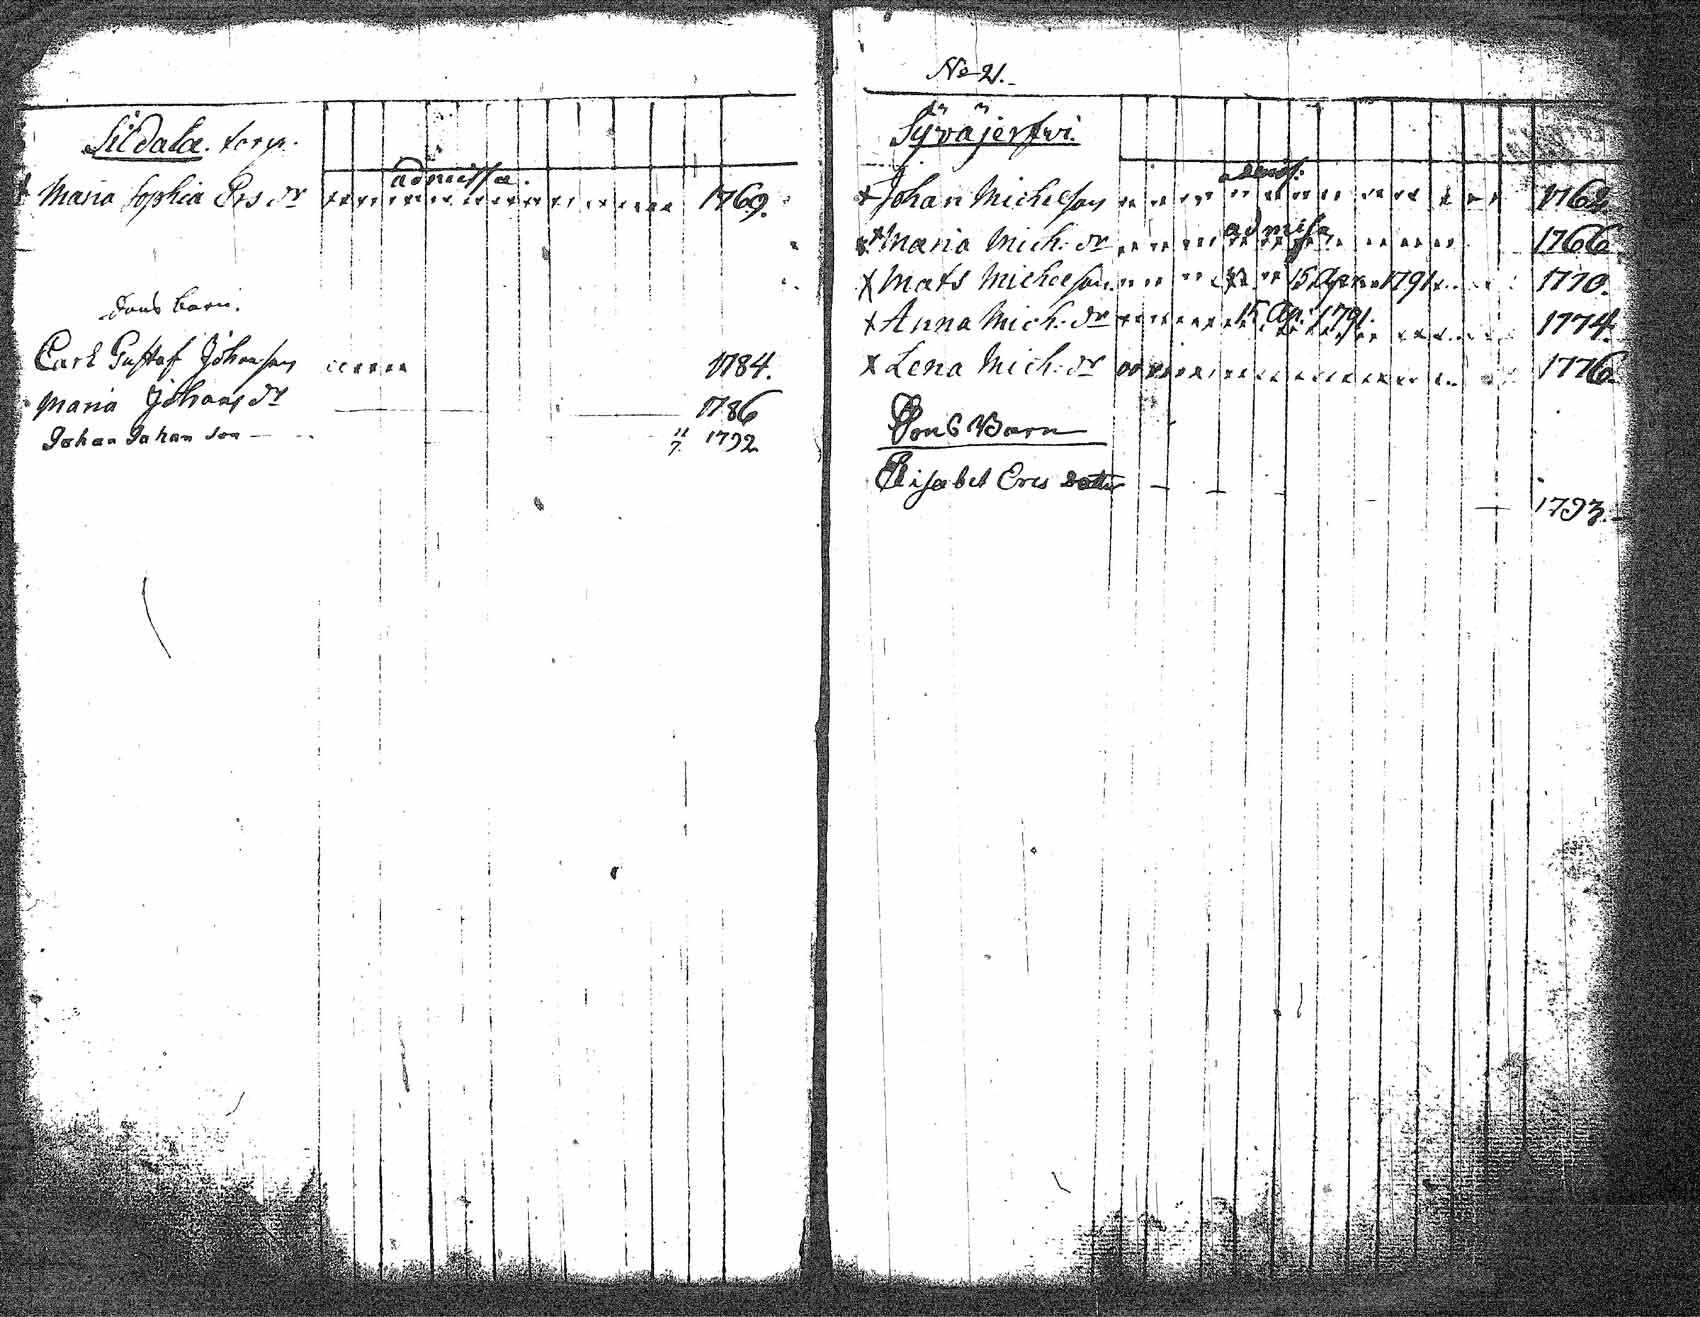 Sildala. torp.
admissa.
Maria Sophia Ers dr 1769.
Dons barn.
Carl Gustaf Johansson 1784.
Maria Johans dr 1786
Johan Johan son 11/7. 1792
No 21.
Syväjerfwi.
admiss:
Johan Michelson 1762
admissa
Maria Mich. dr 1766
Mats Michelson 15 Apr 1791 1770.
Anna Mich. dr 15 Ap. 1791. 1774.
Lena Mich. dr 1776.
Dons Barn
Elisabet Ers dotter 1793.